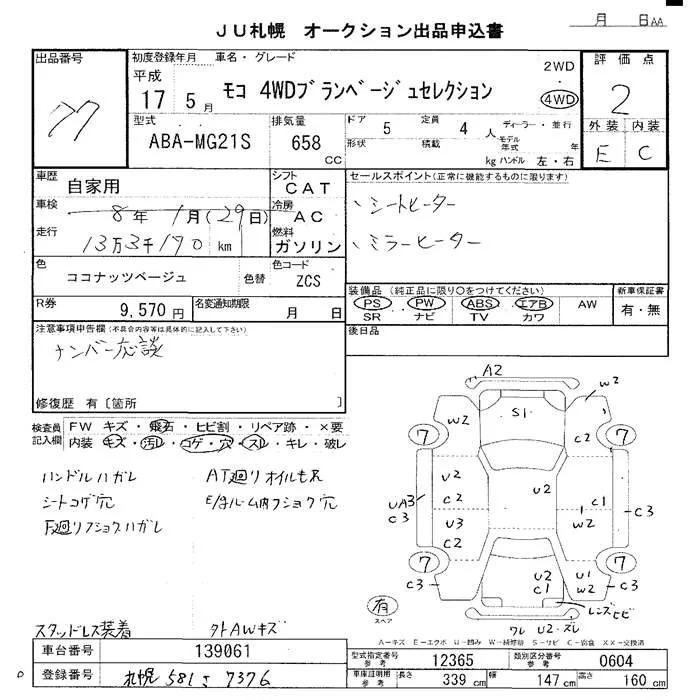 JU札幌 オークション出品申込書
月 日AA
出品番号
77
初度登録年月 車名・グレード
平成
17 5月
モコ 4WDブランベージュセレクション
2WD
・
4WD
評価点
2
外装 内装
E C
型式
ABA-MG21S
排気量
658
CC
ドア 5 定員 4 人 ディーラー・並行
形状 積載 kg モデル年式 年
ハンドル 左・右
車歴
自家用
シフト
CAT
車検
8年 1月(29日)
冷房
AC
走行
13万3千170 km
燃料
ガソリン
色
ココナッツベージュ
色替
色コード
ZCS
R券
9,570円
名変通知期限
月 日
セールスポイント(正常に機能するものに限ります)
、シートヒーター
、ミラーヒーター
装備品(純正品に限り○をつけてください)
PS・PW・ABS・エアB AW
SR ナビ TV カワ
新車保証書
有・無
後日品
注意事項申告欄(不具合内容等は具体的に記入して下さい)
ナンバー応談
修復歴 有〔箇所 〕
検査員記入欄
FW キズ・飛石・ヒビ割・リペア跡・×要
内装 キズ・汚レ・コゲ・穴・スレ・キレ・破レ
ハンドルハガレ
シートコゲ穴
AT廻りオイルモレ
E/gルーム内フショク穴
下廻りフショクハガレ
A2
W2
S1
W2
C2
7
7
U2
C2
U2
C1
W2
UA3
C3
U3
C2
C3
7
7
C3
U2
C1
U1
W2
C3
レンズヒビ
ワレ U2・ズレ
有
スペア
スタッドレス装着
タトAWキズ
A-キズ E-エクボ U-凹み W-補修跡 S-サビ C-腐食 XX-交換済
車台番号
139061
登録番号
札幌 581 さ 7376
型式指定番号
参考
12365
類別区分番号
参考
0604
車庫証明用
参考
長さ 339 cm 幅 147 cm 高さ 160 cm